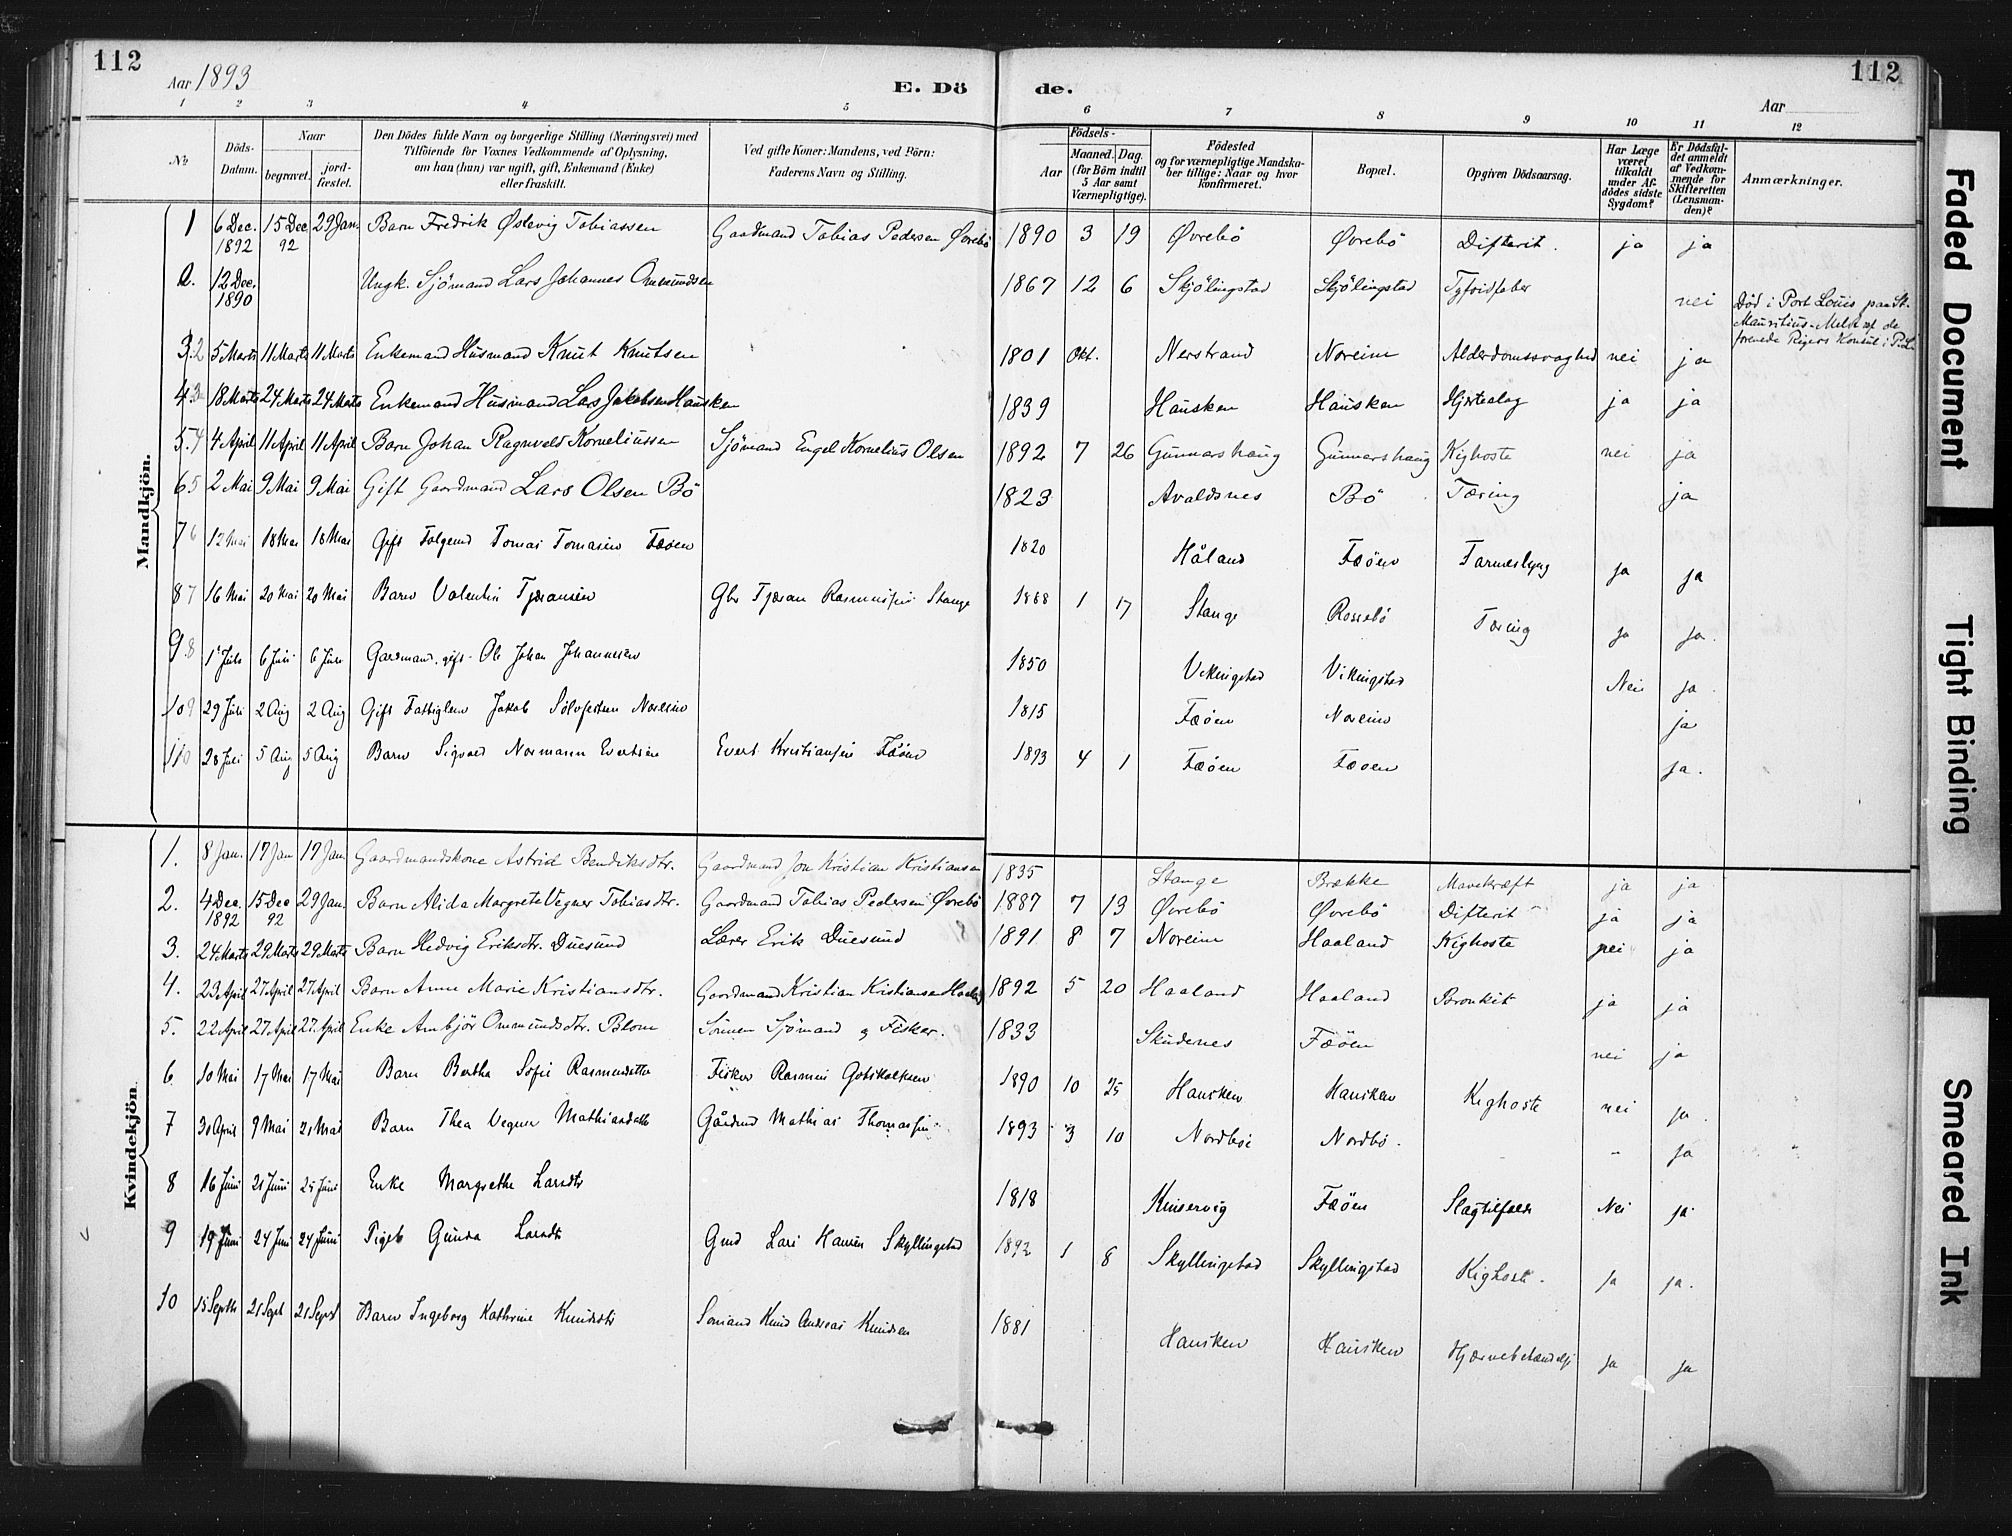 112
Aar 1893
E. Dö
de.
Aar
112
1 2 3 4 5 6 7 8 9 10 11 12
No
Döds-Datum.
Naar
begravet.
jord-fæstet.
Den Dödes fulde Navn og borgerlige Stilling (Næringsvei) med
Tilföiende for Voxnes Vedkommende af Oplysning,
om han (hun) var ugift, gift, Enkemand (Enke)
eller fraskilt.
Ved gifte Koner: Mandens, ved Börn:
Faderens Navn og Stilling.
Födsels-
Aar
Maaned. Dag.
(for Börn indtil
5 Aar samt
Værnepligtige).
Födested
og for værnepligtige Mandska-
ber tillige: Naar og hvor
konfirmeret.
Bopæl.
Opgiven Dödsaarsag.
Har Læge
været
tilkaldt
under Af-
dödes sidste
Sygdom?
Er Dödsfal-
det anmeldt
af Vedkom-
mende for
Skifteretten
(Lensman-
den)?
Anmærkninger.
Mandkjön.
1 6 Dec. 1892 15 Dec 92 29 Jan. Barn Fredrik Østevig Tobiassen Gaardmand Tobias Pedersen Øvrebö 1890 3 19 Øvrebö Øvrebö Difterit. ja ja
2. 12 Dec. 1890 Ungk. Sjömand Lars Johannes Ommundsen 1867 12 6 Skjölingstad Skjölingstad Tyfoidfeber nei Död i Port Louis paa St.
Mauritius. Meldt af de
forenede Rigers Konsul i P.L.
3 2 5 Marts 11 Marts 11 Marts Enkemand Husmand Knut Knutsen 1801 Okt. Nerstrand Noreim Alderdomssvaghed nei ja
4 3 18 Marts 24 Marts 24 Marts Enkemand Husmand Lars Jakobsen Hausken 1839 Hausken Hausken Hjerteslag ja ja
5. 4 4 April 11 April 11 April Barn Johan Ragnvald Korneliussen Sjömand Engel Kornelius Olsen 1892 7 26 Gunnarshaug Gunnarshaug Kighoste nei ja
6 5 2 Mai 9 Mai 9 Mai Gift Gaardmand Lars Olsen Bö 1823 Avaldsnes Bö Tæring ja
7 6 12 Mai 18 Mai 18 Mai Gift Tomas Tomasen Fæøen 1820 Håland Fæöen ja ja
8 7 16 Mai 20 Mai 20 Mai Barn Valentin Tjæransen Gbr Tjæran Rasmussen Stange 1888 1 17 Stange Rossebö Tæring ja ja.
9 8 1 Juli 6 Juli 6 Juli Gardmand. gift. Ole Johan Johannesen 1850 Vikingstad Vikingstad Nei ja.
10 9 29 Juli 2 Aug 2 Aug Gift Fattiglem Jakob Sölvfestsen Noreim 1815 Fæöen Noreim ja
11 10 28 Juli 5 Aug 5 Aug Barn Sigvald Normann Evertsen Evert Kristiansen Fæöen 1893 4 1 Fæöen Fæoen ja.
Kvindekjön.
1. 8 Jan. 17 Jan 17 Jan. Gaardmandskone Astrid Bendiksdtr. Gaardmand Jon Kristian Kristiansen 1835 Stange Brække Mavekræft ja ja
2. 4 Dec. 1892 15 Dec 92 29 Jan. Barn Alida Margrete Vegner Tobiasdtr. Gaardmand Tobias Pedersen Øvrebö 1887 7 13 Øvrebö Øvrebö Difterit ja ja
3. 24 Marts 29 Marts 29 Marts Barn Hedvig Eriksdtr. Duesund Lærer Erik Duesund 1891 8 7 Noreim Haaland Kighoste nei ja
4. 23 April 27 April 27 April Barn Anne Marie Kristiansdtr. Gaardmand Kristian Kristiansen Haaland 1892 5 20 Haaland Haaland Bronkit ja ja
5. 22 April 27 April 27 April Enke Anbjör Ommundsdtr. Blom Sönnen Sjömand & Fisker. 1833 Skudenes Fæöen nei ja
6 10 Mai 17 Mai 17 Mai Barn Bertha Sofie Rasmusdatter Fisker Rasmus Gotskalksen 1890 10 25 Hausken Hausken Kighoste nei ja.
7 30 April 9 Mai 21 Mai Barn Thea Vegner Mathiasdatter Gårdmd Mathias Thomassen 1893 3 10 Nordböe Nordbö. " ja
8 16 Juni 21 Juni 25 Juni Enke Margrethe Larsdtr 1818 Kinservig Fæöen Slagtilfælde Nei ja
9 19 Juni 24 Juni 24 Juni Pigeb Gunda Larsdtr Gmd Lars Hansen Skyllingstad 1892 1 8 Skyllingstad Skyllingstad Kighoste. ja ja.
10 15 Septb 21 Sept 21 Sept Barn Ingeborg Kathrine Knudsdtr Sømand Knud Andreas Knudsen 1881 Hausken Hausken ja ja
Faded Document
Tight Binding
Smeared Ink